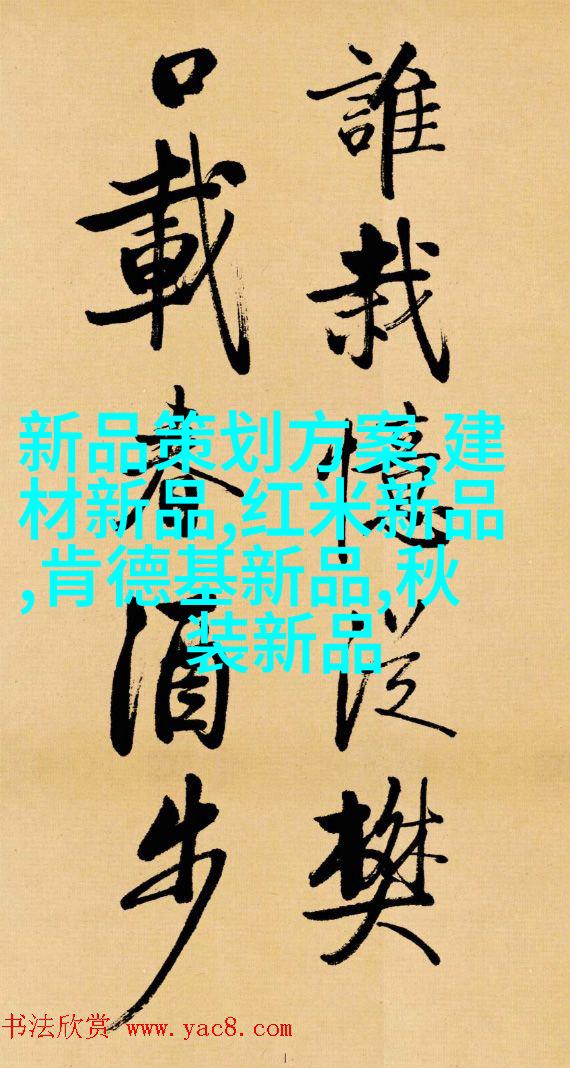 誰栽憶從樊
口載春酒步
新品策划方案,建
材新品,红米新品
,肯德基新品,秋
装新品
书法欣赏 www.yac8.com